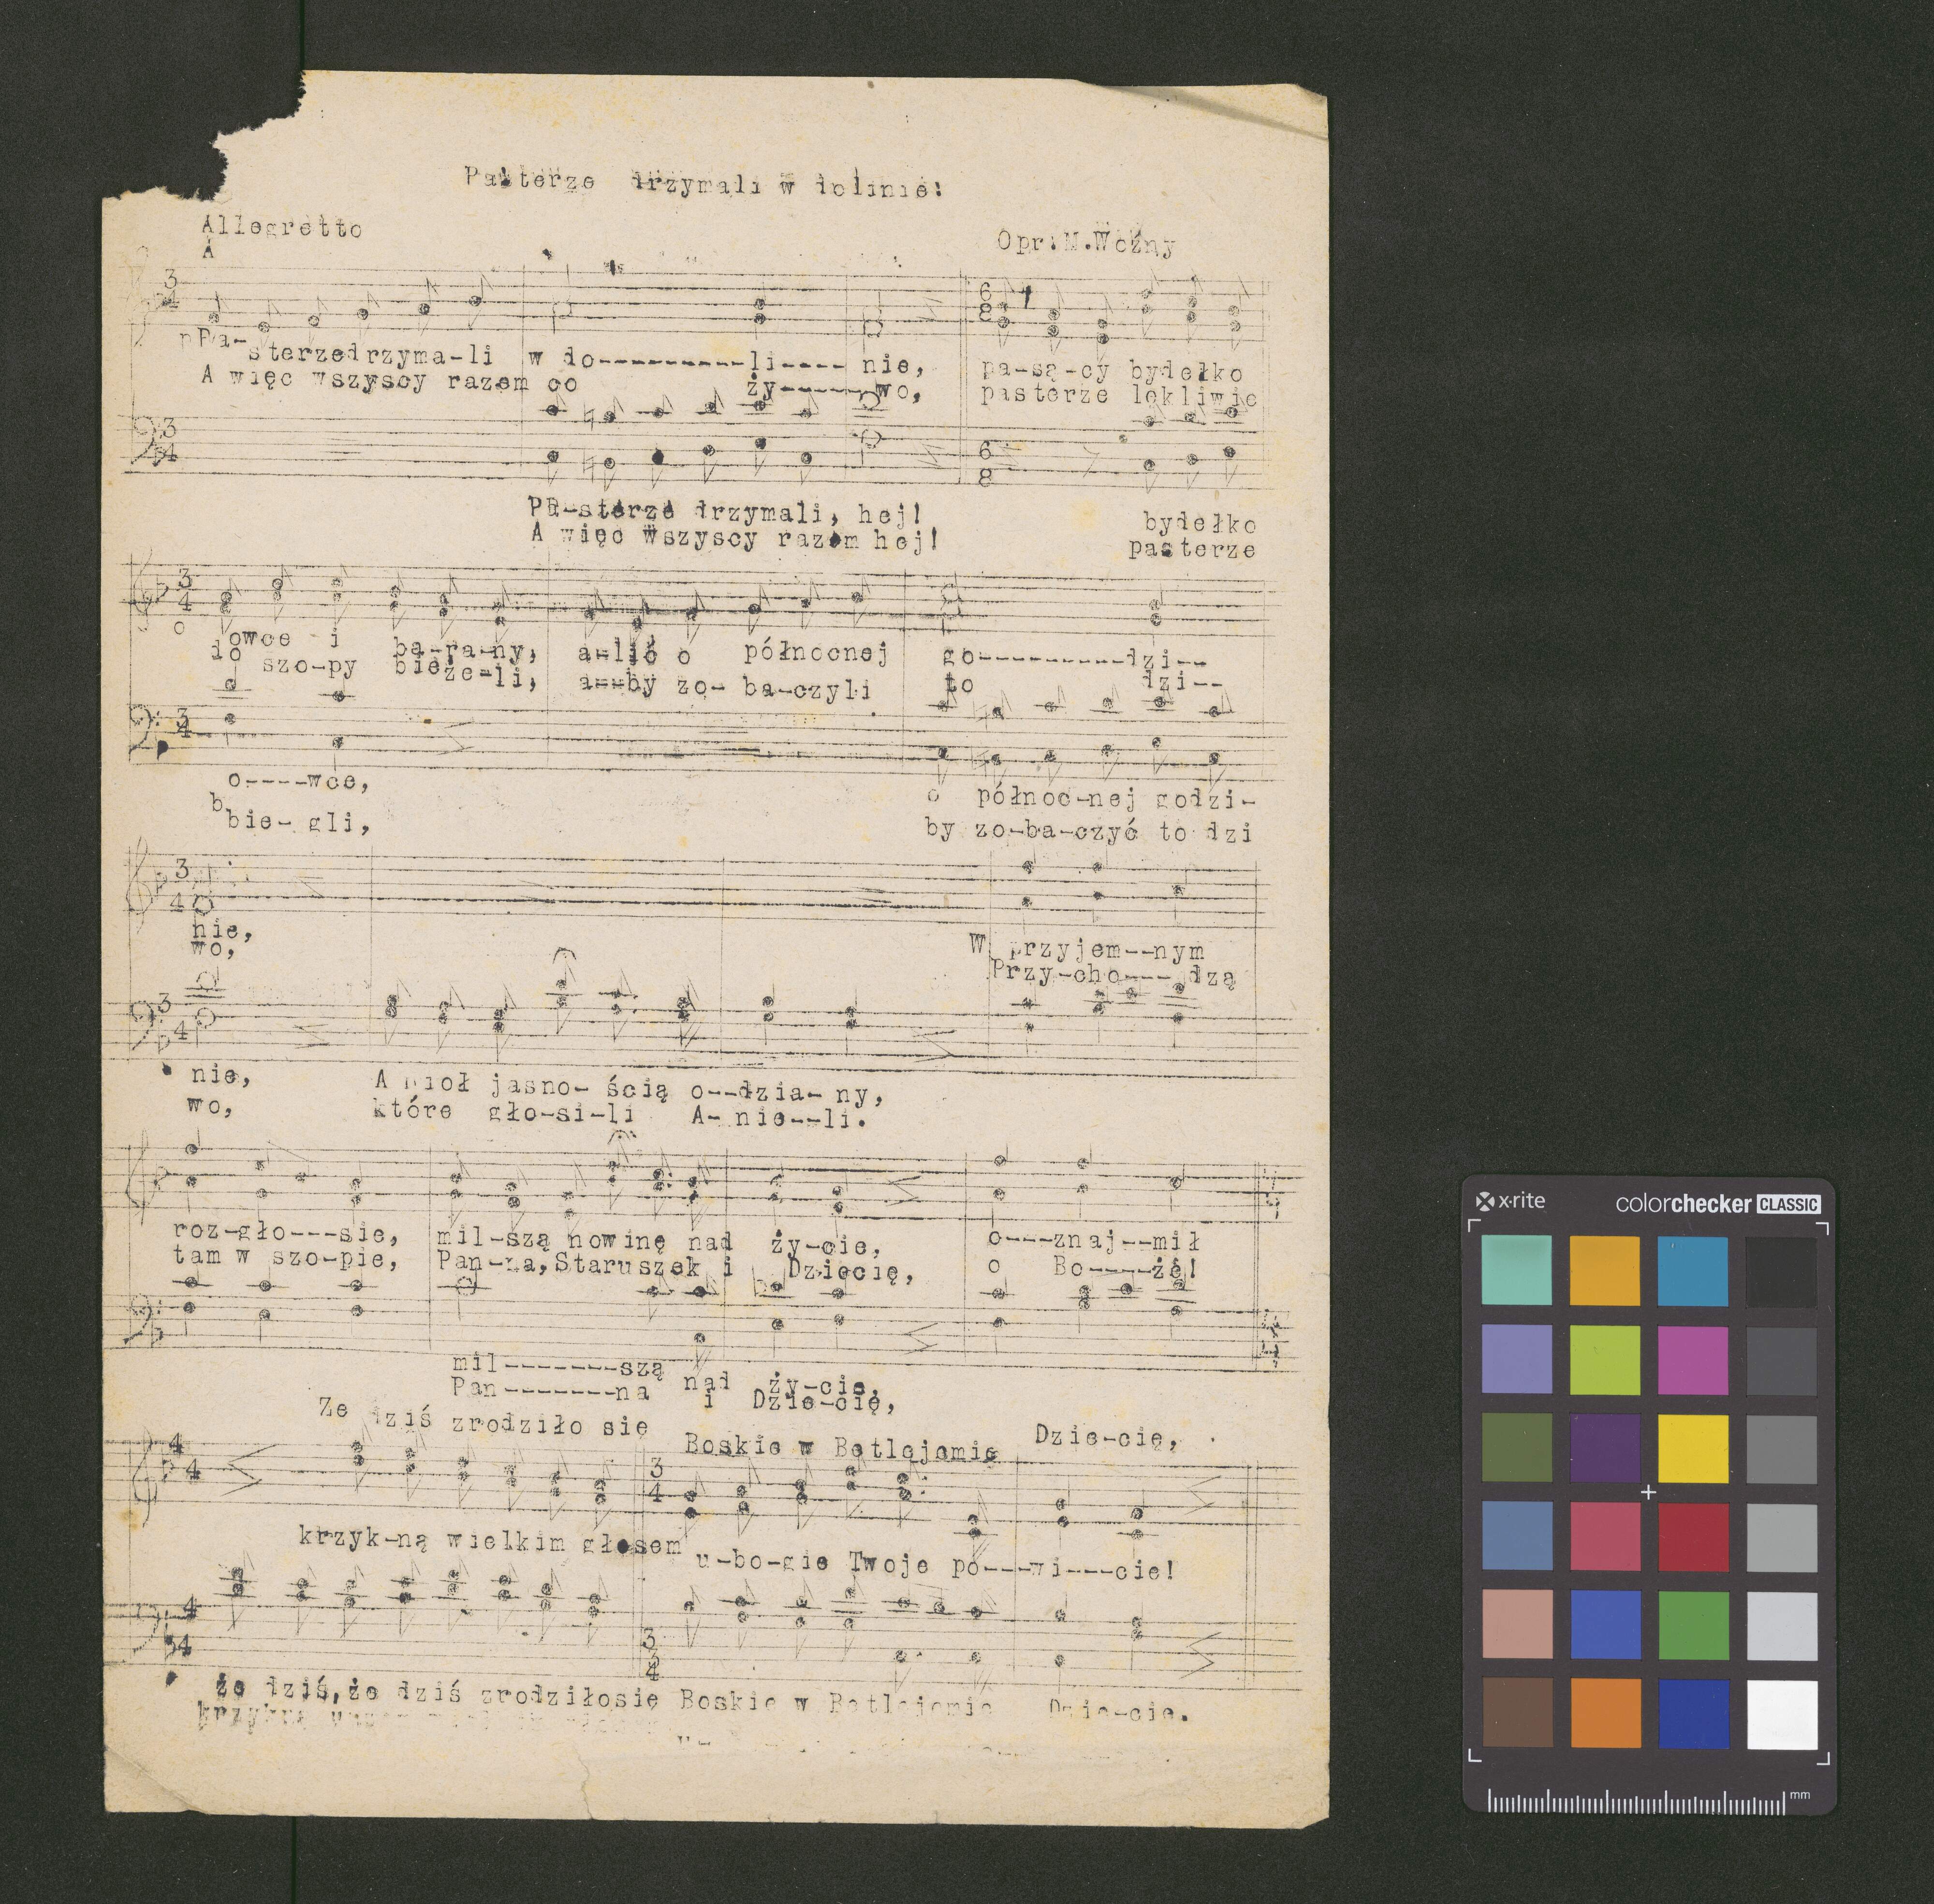 Pasterze drzymali w dolinie!
Allegretto
A
Opr: M.Woźny
3
4
6
8
Pa-sterzedrzyma-li w do----------li---- nie, pa-są-cy bydełko
A więc wszyscy razem co ży------wo, pasterze lękliwie
3
4
6
8
Pa-sterze drzymali, hej! bydełko
A więc wszyscy razem hej! pasterze
3
4
o owce i ba-ra-ny, a-lić o północnej go-----------dzi--
do szo-py bieże-li, a--by zo- ba-czyli to dzi--
3
4
o----wce, o północ-nej godzi-
b bie- gli, by zo-ba-czyć to dzi
3
4
nie, W przyjem--nym
wo, Przy-cho--- dzą
3
4
nie, A nioł jasno- ścią o--dzia- ny,
wo, które gło-si-li A- nie--li.
roz-gło---sie, mil-szą nowinę nad ży-cie, o---znaj--mił
tam w szo-pie, Pan-na,Staruszek i Dziecię, o Bo----żé!
mil-------szą nad ży-cie,
Pan-------na i Dzie-cię,
Ze dziś zrodziło się Boskie w Betlejemie Dzie-cię,
4
4
3
4
krzyk-ną wielkim głosem u-bo-gie Twoje po---wi---cie!
4
4
3
4
że dziś,że dziś zrodziłosię Boskie w Betlejemie Dzie-cie.
krzykną
x·rite colorchecker CLASSIC
mm